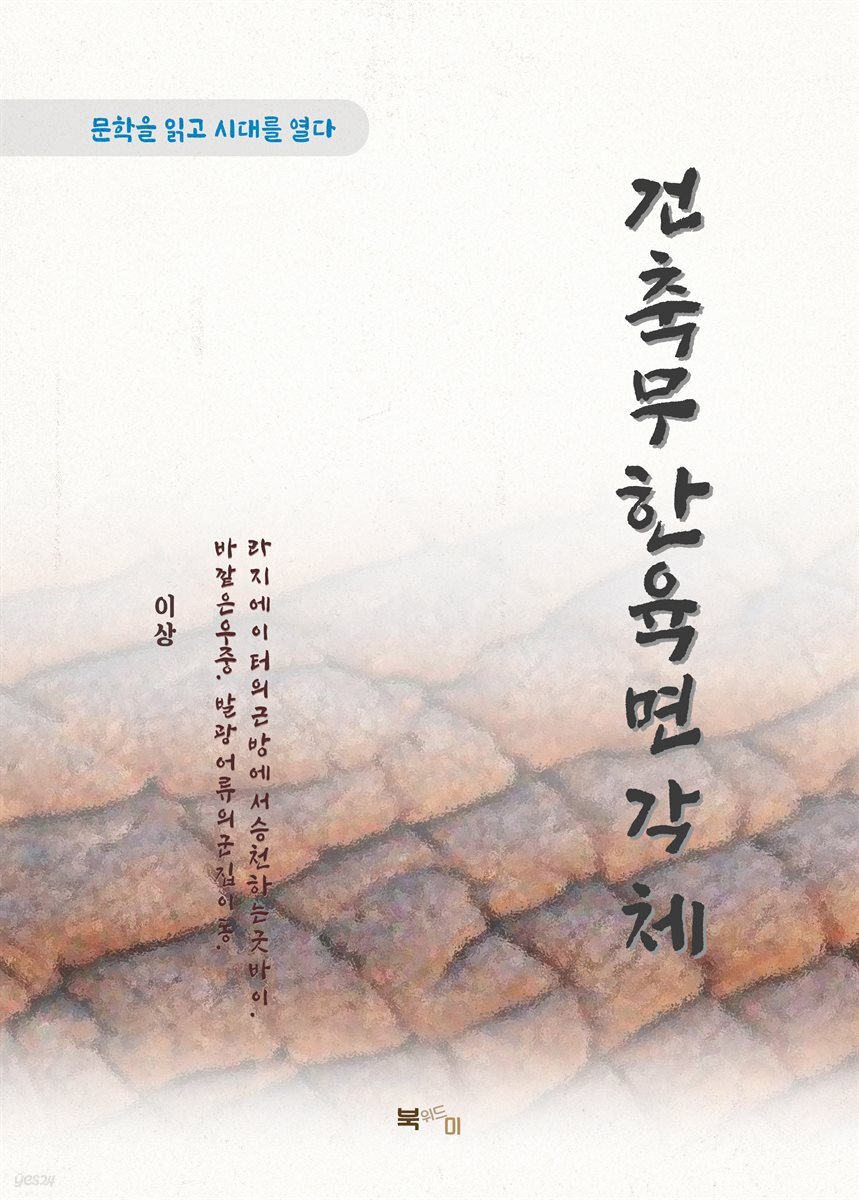 문학을 읽고 시대를 열다
건축무한육면각체
라지에이터의근방에서승천하는굿바이.
바깥은우중. 발광어류의군집이동.
이상
북위드미
yes24